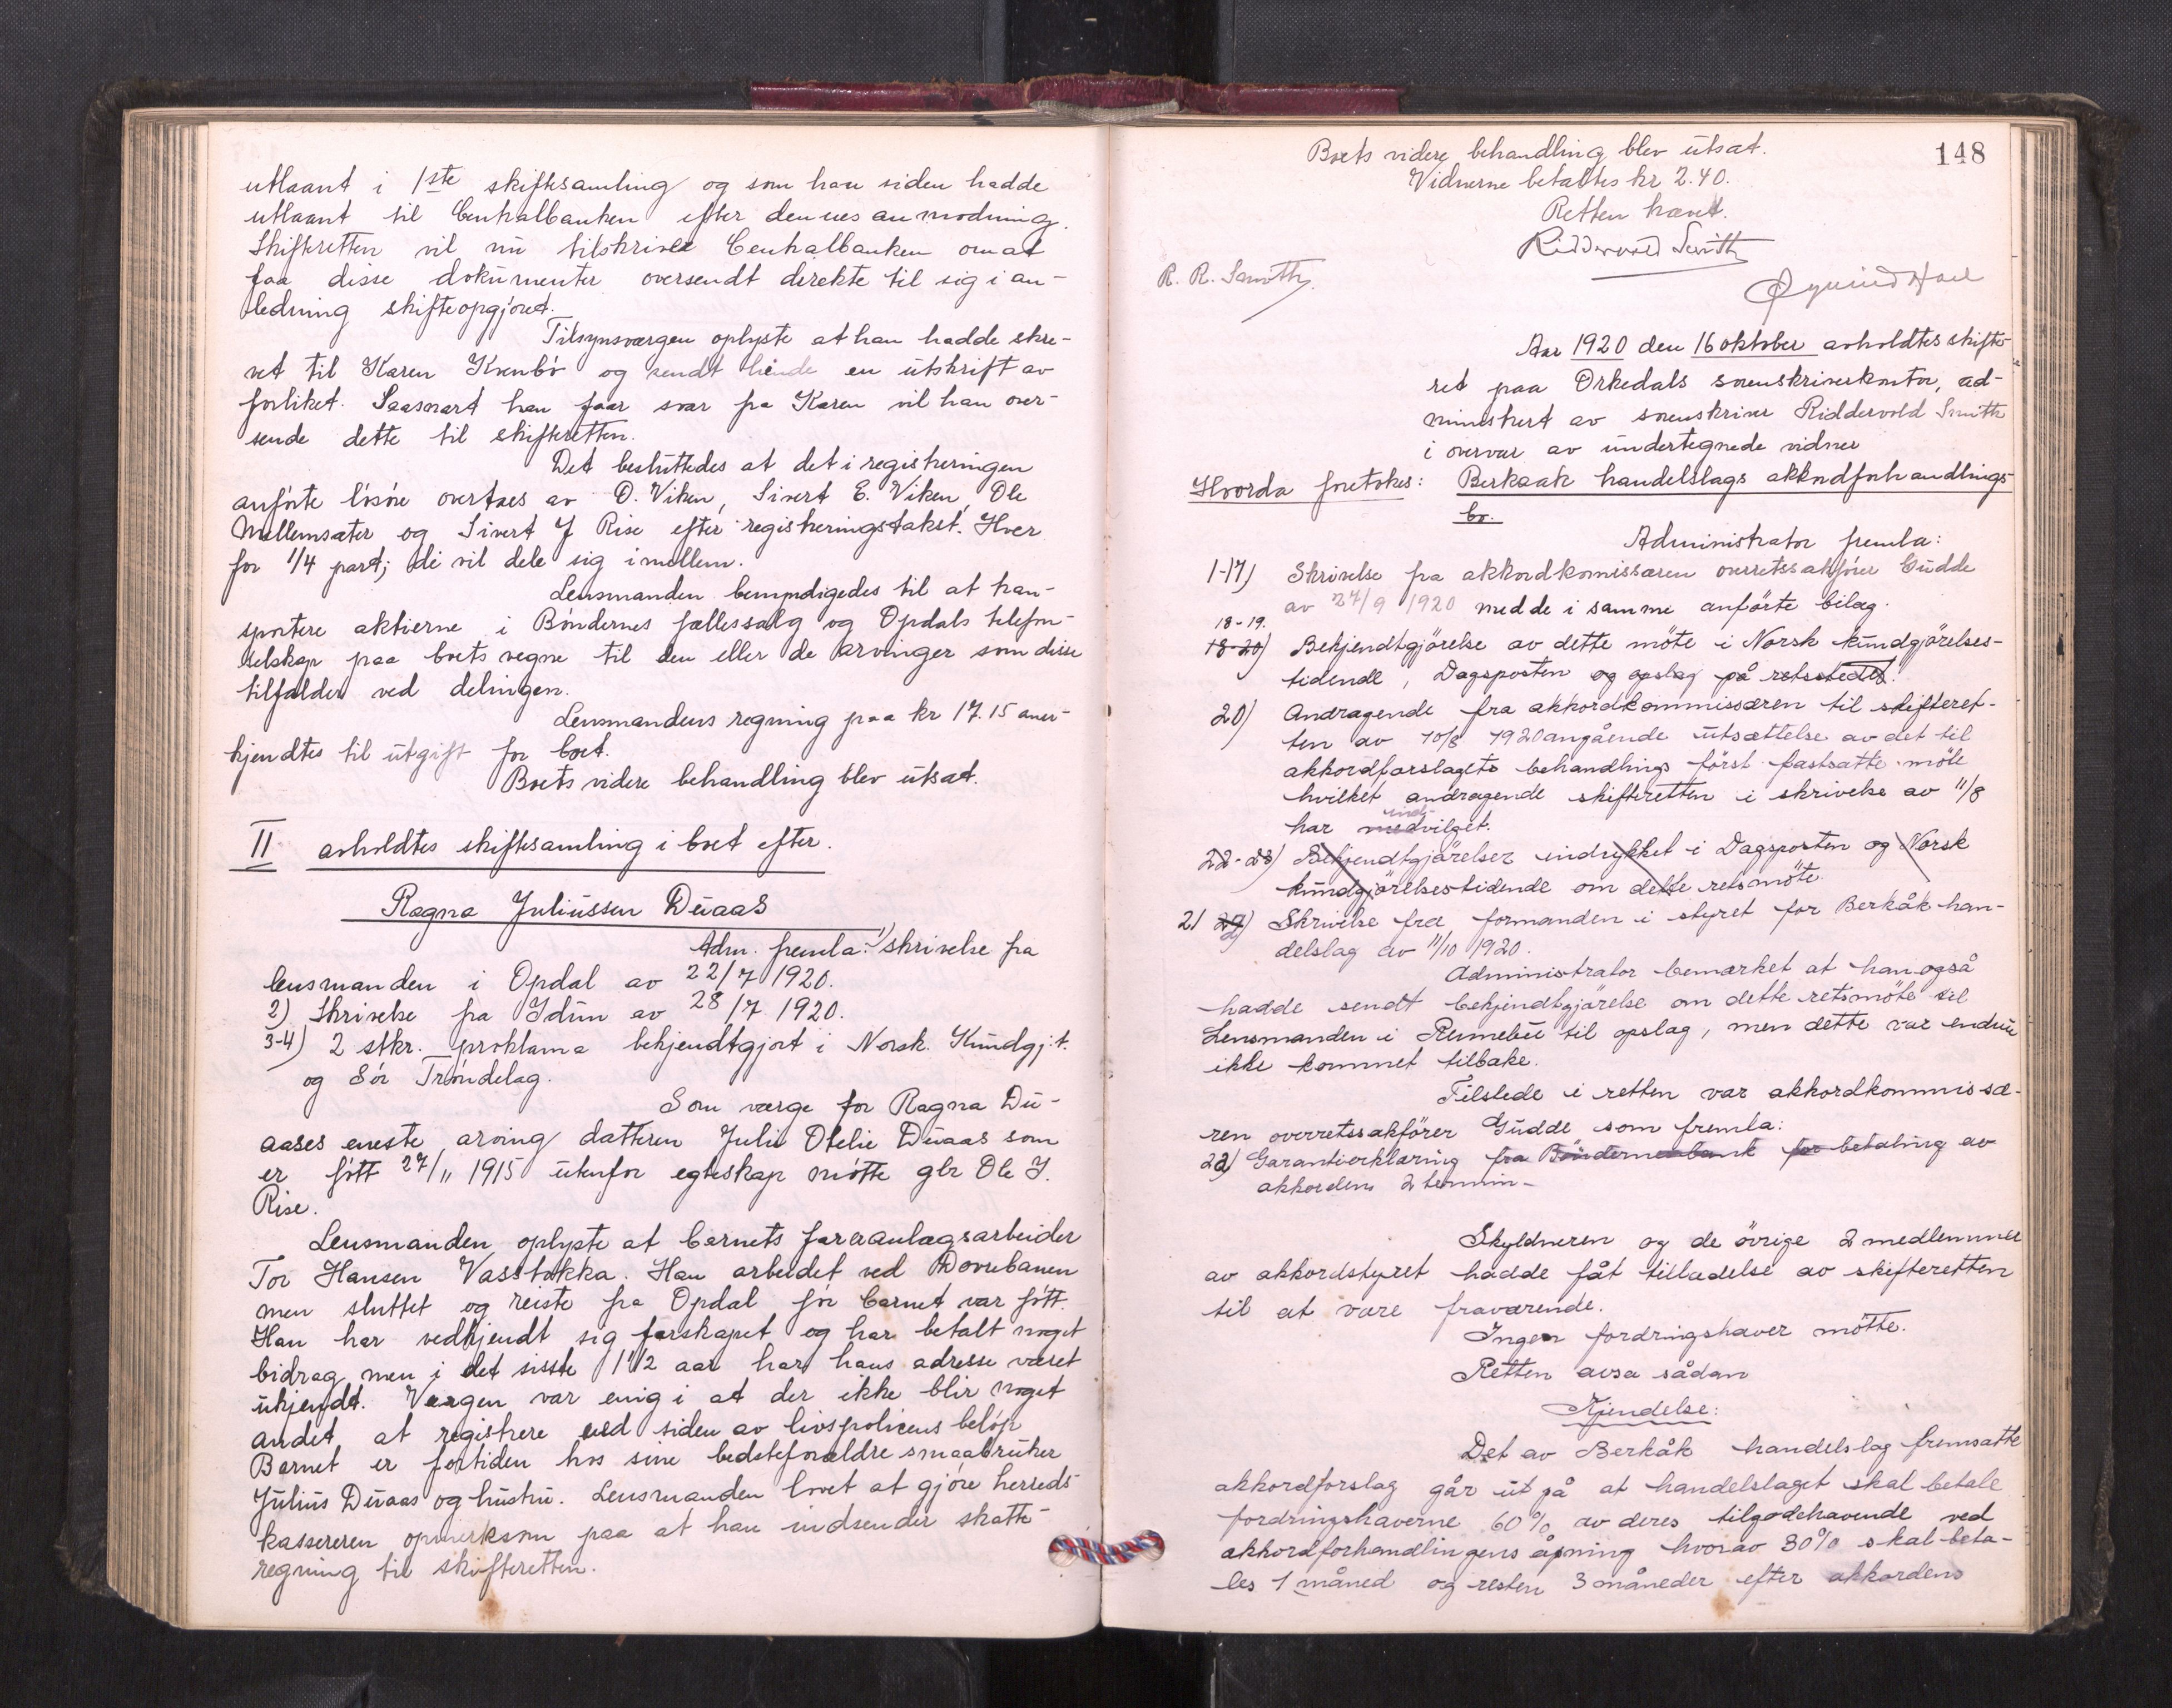 utlaant i 1ste skiftesamling og som han siden hadde
utlaant til Centralbanken efter dennes anmodning.
Skifteretten vil nu tilskrive Centralbanken om at
faa disse dokumenter oversendt direkte til sig i an-
ledning skifteopgjøret.
Tilsynsværgen oplyste at han hadde skre-
vet til Karen Kvenbö og sendt hende en utskrift av
forliket. Saasnart han faar svar fra Karen vil han over-
sende dette til skifteretten.
Det besluttedes at det i registreringen
anførte løsøre overtaes av O. Viken, Sivert E. Viken, Ole
Mellemsæter og Sivert J Rise efter registreringstakst. Hver
for 1/4 part; de vil dele sig imellem.
Lensmanden bemyndigedes til at tran-
sportere aktierne i Böndernes fællessalg og Opdals telefon-
selskap paa boets vegne til den eller de arvinger som disse
tilfalder ved delingen.
Lensmandens regning paa kr 17.15 aner-
kjendtes til utgift for boet.
Boets videre behandling blev utsat.
II avholdtes skiftesamling i boet efter.
Ragna Juliussen Duaas
Adm. fremla: 1) skrivelse fra
lensmanden i Opdal av 22/7 1920.
2) Skrivelse fra Idun av 28/7 1920.
3-4) 2 stkr. proklama bekjendtgjort i Norsk. Kundgj.t.
og Sör Tröndelag.
Som værge for Ragna Du-
aases eneste arving datteren Julie Otelie Duaas som
er født 27/11 1915 utenfor egteskap møtte gbr Ole J.
Rise.
Lensmanden oplyste at barnets far er anlægsarbeider
Tor Hansen Vasstokka. Han arbeidet ved Dovrebanen
men sluttet og reiste fra Opdal før barnet var født.
Han har vedkjendt sig farskapet og har betalt noget
bidrag men i det sisste 1 1/2 aar har hans adresse været
ukjendt. Værgen var enig i at der ikke blir noget
andet at registrere ved siden av livspolicens beløp
Barnet er fortiden hos sine bedsteforældre smaabruker
Julius Duaas og hustru. Lensmanden lovet at gjøre herreds-
kassereren opmerksom paa at han indsender skatte-
regning til skifteretten.
148
Boets videre behandling blev utsat.
Vidnerne betaltes kr 2.40.
Retten hævet.
Riddervold Smith
R. R. Smith.
Øyvind
Aar 1920 den 16 oktober avholdtes skifte-
ret paa Orkedals sorenskriverkontor, ad-
ministrert av sorenskriver Riddervold Smith
i overvær av undertegnede vidner
Hvorda foretokes: Berkaak handelslags akkordforhandlings-
bo.
Administrator fremla:
1-17) Skrivelse fra akkordkomissæren overretssakfører Gudde
av 27/9 1920 med de i samme anförte bilag.
18-19.
18-20) Bekjendtgjörelse av dette möte i Norsk kundgjörelses-
tidende, Dagsposten og opslag på retsstedet.
20) Andragende fra akkordkommissæren til skifteret-
ten av 10/8 1920 angående utsættelse av det til
akkordforslagets behandling först fastsatte möte
hvilket andragende skifteretten i skrivelse av 11/8
har ind
medvilget.
22-23) Bekjendtgjörelser indrykket i Dagsposten og Norsk
kundgjörelsestidende om dette retsmöte.
21 Skrivelse fra formanden i styret for Berkåk han-
delslag av 11/10 1920.
Administrator bemærket at han også
hadde sendt bekjendtgjörelse om dette retsmöte til
Lensmanden i Rennebu til opslag, men dette var endnu
ikke kommet tilbake.
Tilstede i retten var akkordkommissæ-
ren overretssakförer Gudde som fremla:
22) Garantierklæring fra Böndernesbank for betaling av
akkordens 2 termin-
Skyldneren og de övrige 2 medlemmer
av akkordstyret hadde fåt tilladelse av skifteretten
til at være fraværende.
Ingen fordringshaver mötte.
Retten avsa sådan
Kjendelse:
Det av Berkåk handelslag fremsatte
akkordforslag går ut på at handelslaget skal betale
fordringshaverne 60% av deres tilgodehavende ved
akkordforhandlingens åpning hvorav 30% skal beta-
les 1 måned og resten 3 måneder efter akkordens